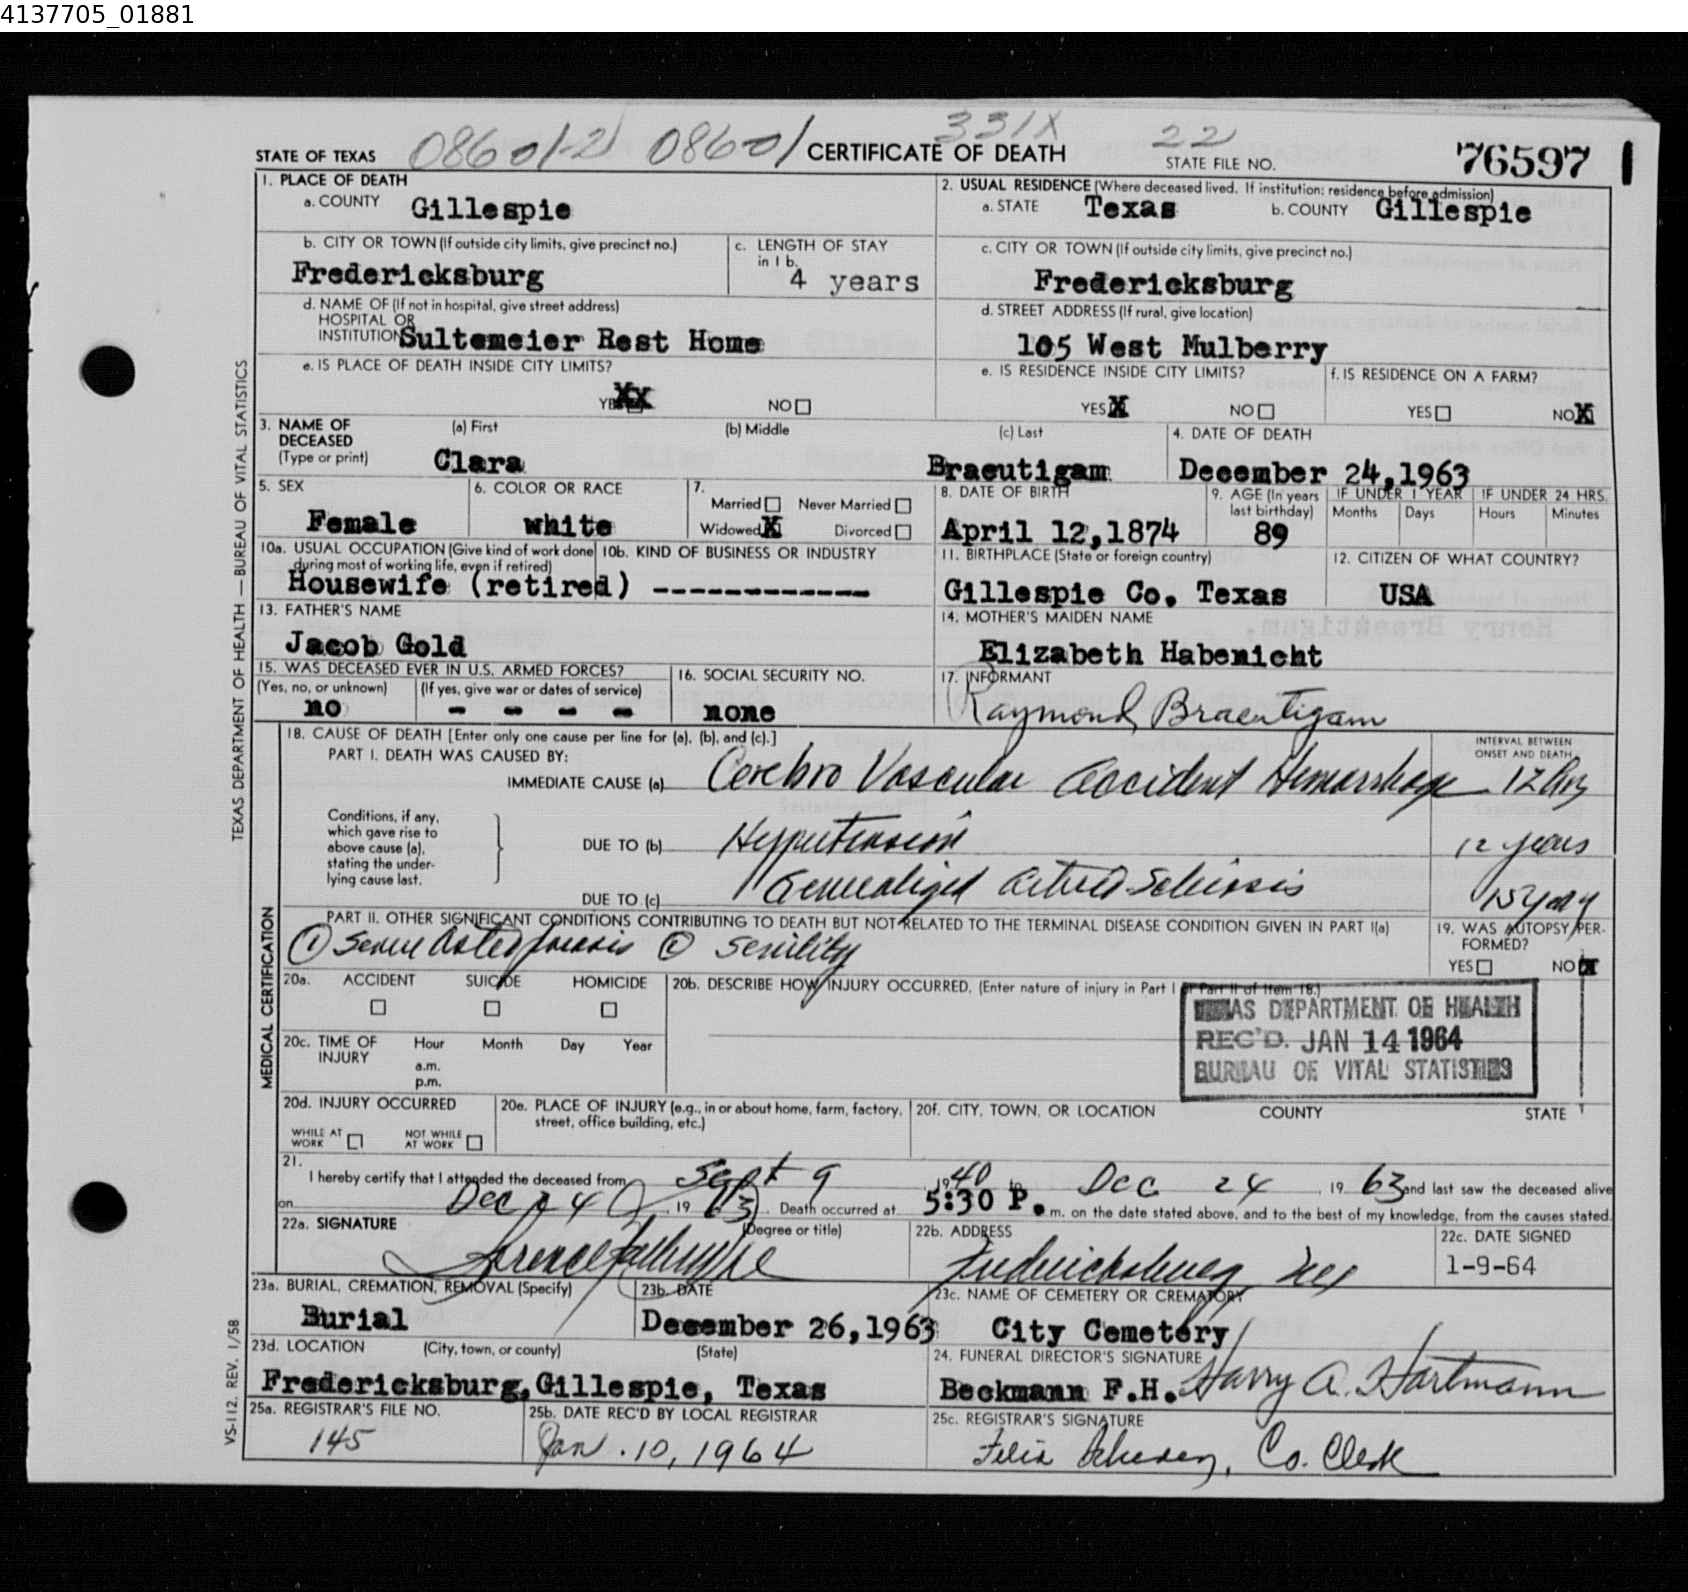 4137705_01881
STATE OF TEXAS 08601-2 08601 CERTIFICATE OF DEATH 331X 22 STATE FILE NO. 76597 1
1. PLACE OF DEATH
a. COUNTY Gillespie
2. USUAL RESIDENCE (Where deceased lived. If institution: residence before admission)
a. STATE Texas b. COUNTY Gillespie
b. CITY OR TOWN (If outside city limits, give precinct no.)
Fredericksburg
c. LENGTH OF STAY
in 1 b.
4 years
c. CITY OR TOWN (If outside city limits, give precinct no.)
Fredericksburg
d. NAME OF (If not in hospital, give street address)
HOSPITAL OR
INSTITUTION Sultemeier Rest Home
d. STREET ADDRESS (If rural, give location)
105 West Mulberry
e. IS PLACE OF DEATH INSIDE CITY LIMITS?
YES Xx NO
e. IS RESIDENCE INSIDE CITY LIMITS?
YES X NO
f. IS RESIDENCE ON A FARM?
YES NO X
3. NAME OF
DECEASED
(Type or print)
(a) First (b) Middle (c) Last
Clara Braeutigam
4. DATE OF DEATH
December 24,1963
5. SEX
Female
6. COLOR OR RACE
white
7.
Married Never Married
Widowed X Divorced
8. DATE OF BIRTH
April 12,1874
9. AGE (In years
last birthday)
89
IF UNDER 1 YEAR
Months Days
IF UNDER 24 HRS.
Hours Minutes
10a. USUAL OCCUPATION (Give kind of work done
during most of working life, even if retired)
Housewife (retired)
10b. KIND OF BUSINESS OR INDUSTRY
------------
11. BIRTHPLACE (State or foreign country)
Gillespie Co. Texas
12. CITIZEN OF WHAT COUNTRY?
USA
13. FATHER'S NAME
Jacob Gold
14. MOTHER'S MAIDEN NAME
Elizabeth Habenicht
15. WAS DECEASED EVER IN U.S. ARMED FORCES?
(Yes, no, or unknown) (If yes, give war or dates of service)
no - - - -
16. SOCIAL SECURITY NO.
none
17. INFORMANT
Raymond Braeutigam
18. CAUSE OF DEATH [Enter only one cause per line for (a), (b), and (c).]
PART I. DEATH WAS CAUSED BY:
INTERVAL BETWEEN
ONSET AND DEATH
IMMEDIATE CAUSE (a) Cerebro Vascular accident Hemorrhage 12 hrs
Conditions, if any,
which gave rise to
above cause (a),
stating the under-
lying cause last.
DUE TO (b) Hypertension 12 years
DUE TO (c) Generalized 15 years
PART II. OTHER SIGNIFICANT CONDITIONS CONTRIBUTING TO DEATH BUT NOT RELATED TO THE TERMINAL DISEASE CONDITION GIVEN IN PART I(a)
① ② Senility
19. WAS AUTOPSY PER-
FORMED?
YES NO X
20a. ACCIDENT SUICIDE HOMICIDE
20b. DESCRIBE HOW INJURY OCCURRED. (Enter nature of injury in Part I or Part II of Item 18.)
TEXAS DEPARTMENT OF HEALTH
REC'D. JAN 14 1964
BUREAU OF VITAL STATISTICS
20c. TIME OF
INJURY
Hour Month Day Year
a.m.
p.m.
20d. INJURY OCCURRED
WHILE AT
WORK
NOT WHILE
AT WORK
20e. PLACE OF INJURY (e.g., in or about home, farm, factory,
street, office building, etc.)
20f. CITY, TOWN, OR LOCATION COUNTY STATE
21.
I hereby certify that I attended the deceased from Sept 9, 1940 to Dec 24, 1963 and last saw the deceased alive
on Dec 24, 1963. Death occurred at 5:30 P. m. on the date stated above, and to the best of my knowledge, from the causes stated.
22a. SIGNATURE (Degree or title)
22b. ADDRESS
Fredericksburg, Tex
22c. DATE SIGNED
1-9-64
23a. BURIAL, CREMATION, REMOVAL (Specify)
Burial
23b. DATE
December 26,1963
23c. NAME OF CEMETERY OR CREMATORY
City Cemetery
23d. LOCATION (City, town, or county) (State)
Fredericksburg, Gillespie, Texas
24. FUNERAL DIRECTOR'S SIGNATURE
Beckmann F.H. Harry A. Hartmann
25a. REGISTRAR'S FILE NO.
145
25b. DATE REC'D BY LOCAL REGISTRAR
Jan. 10, 1964
25c. REGISTRAR'S SIGNATURE
Felix Co. Clerk
TEXAS DEPARTMENT OF HEALTH — BUREAU OF VITAL STATISTICS
MEDICAL CERTIFICATION
VS-112. REV. 1/58